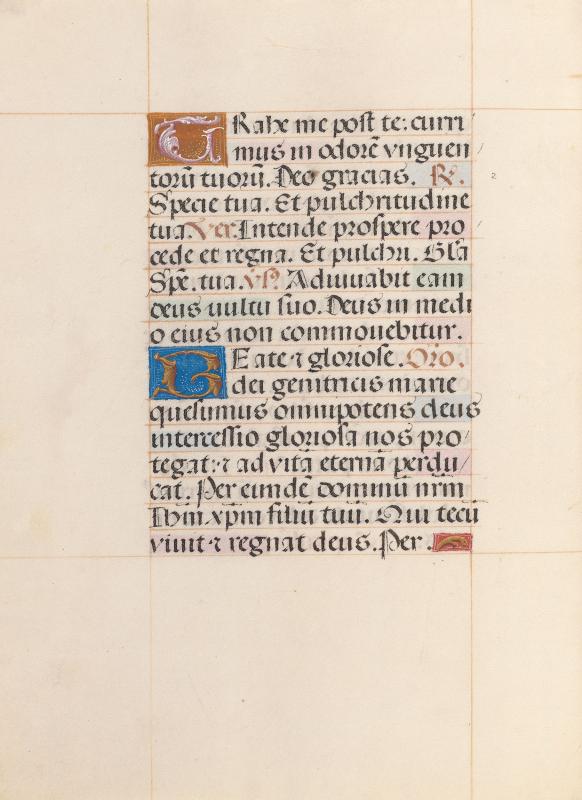 TRahe me post te: curri
mus in odorē vnguen
torū tuorū. Deo gracias. ℟.
Specie tua. Et pulchritudine
tua. Ver. Intende prospere pro
cede et regna. Et pulchri. Gła
Spē. tua. ℣. Adiuuabit eam
deus uultu suo. Deus in medi
o eius non commouebitur.
BEate ⁊ gloriose. Oro.
dei genitricis marie
quesumus omnipotens deus
intercessio gloriosa nos pro
tegat: ⁊ ad vitā eternā perdu
cat. Per eundē dominū nr̄m
Ihm̄ xp̄m filiū tuū. Qui tecū
viuit ⁊ regnat deus. Per.